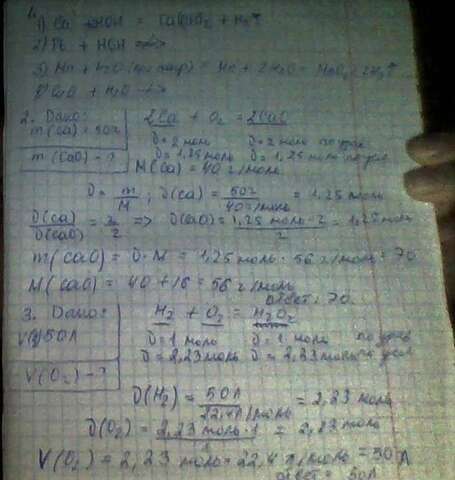 1) Ca + HOH = Ca(OH)2 + H2↑
2) Pb + HOH
3) Mn + H2O
+ H2O
2. Дано:
m(Ca) = 50г
m(CaO) - ?
2Ca + O2 = 2CaO
υ = 2 моль υ = 2 моль по ур.
υ = 1,25 моль υ = 1,25 моль по усл
M(Ca) = 40 г/моль
υ = m/M ; υ(Ca) = 50г / 40 г/моль = 1,25 моль
υ(Ca)/υ(CaO) = 2/2 => υ(CaO) = 1,25 моль · 2 / 2 = 1,25 моль
m(CaO) = υ · M = 1,25 моль · 56 г/моль = 70
M(CaO) = 40 + 16 = 56 г/моль
Ответ: 70.
3. Дано:
50Л
V(O2) - ?
H2 + O2 = H2O2
υ = 1 моль υ = 1 моль по ур
υ = 2,23 моль υ = 2,23 моль по усл
υ(H2) = 50Л / 22,4Л/моль = 2,23 моль
υ(O2) = 2,23 моль · 1 / 1 = 2,23 моль
V(O2) = 2,23 моль · 22,4 л/моль = 50 Л
Ответ = 50Л